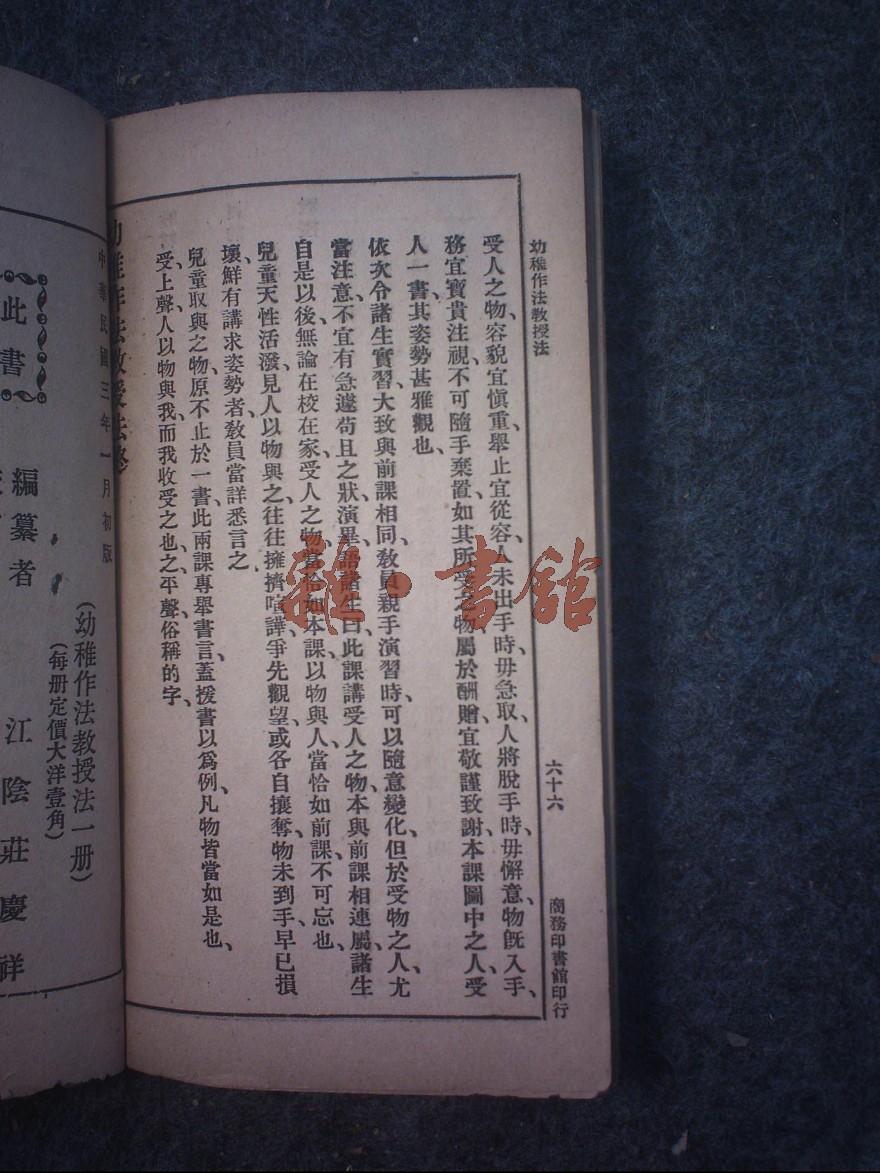 幼稚作法教授法
六十六
商務印書館印行
受人之物、容貌宜愼重、舉止宜從容、人未出手時、毋急取、人將脫手時、毋懈意、物旣入手、
務宜寶貴注視、不可隨手棄置、如其所受之物、屬於酬贈、宜敬謹致謝、本課圖中之人、受
人一書、其姿勢甚雅觀也、
依次令諸生實習、大致與前課相同、敎員親手演習時、可以隨意變化、但於受物之人、尤
當注意、不宜有急遽苟且之狀、演畢、語諸生曰、此課講受人之物、本與前課相連屬、諸生
自是以後、無論在校在家、受人之物、當恰如本課、以物與人、當恰如前課、不可忘也、
兒童天性活潑、見人以物與之、往往擁擠喧譁、爭先觀望、或各自攘奪、物未到手、早已損
壞、鮮有講求姿勢者、敎員當詳悉言之、
兒童取與之物、原不止於一書、此兩課專舉書言、蓋援書以爲例、凡物皆當如是也、
受、上聲、人以物與我、而我收受之也、之、平聲、俗稱的字、
幼稚作法教授法終
中華民國三年一月初版
(幼稚作法教授法一册)
(每册定價大洋壹角)
編纂者
江陰莊慶祥
此書
雜·書館